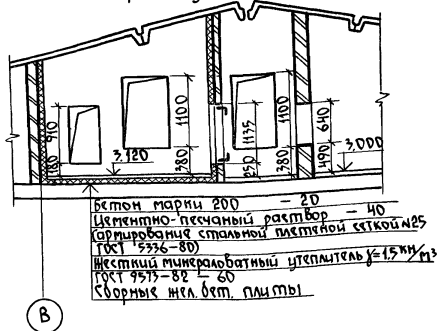 910
180
1100
380
1135
250
1100
380
640
490
3.120
3,000
Бетон марки 200 – 20
Цементно-песчаный раствор – 40
(армирование стальной плетеной сеткой N25
ГОСТ 5336-80)
Жесткий минераловатный утеплитель γ=1.5 кн/м³
ГОСТ 9573-82 – 60
Сборные жел. бет. плиты
В